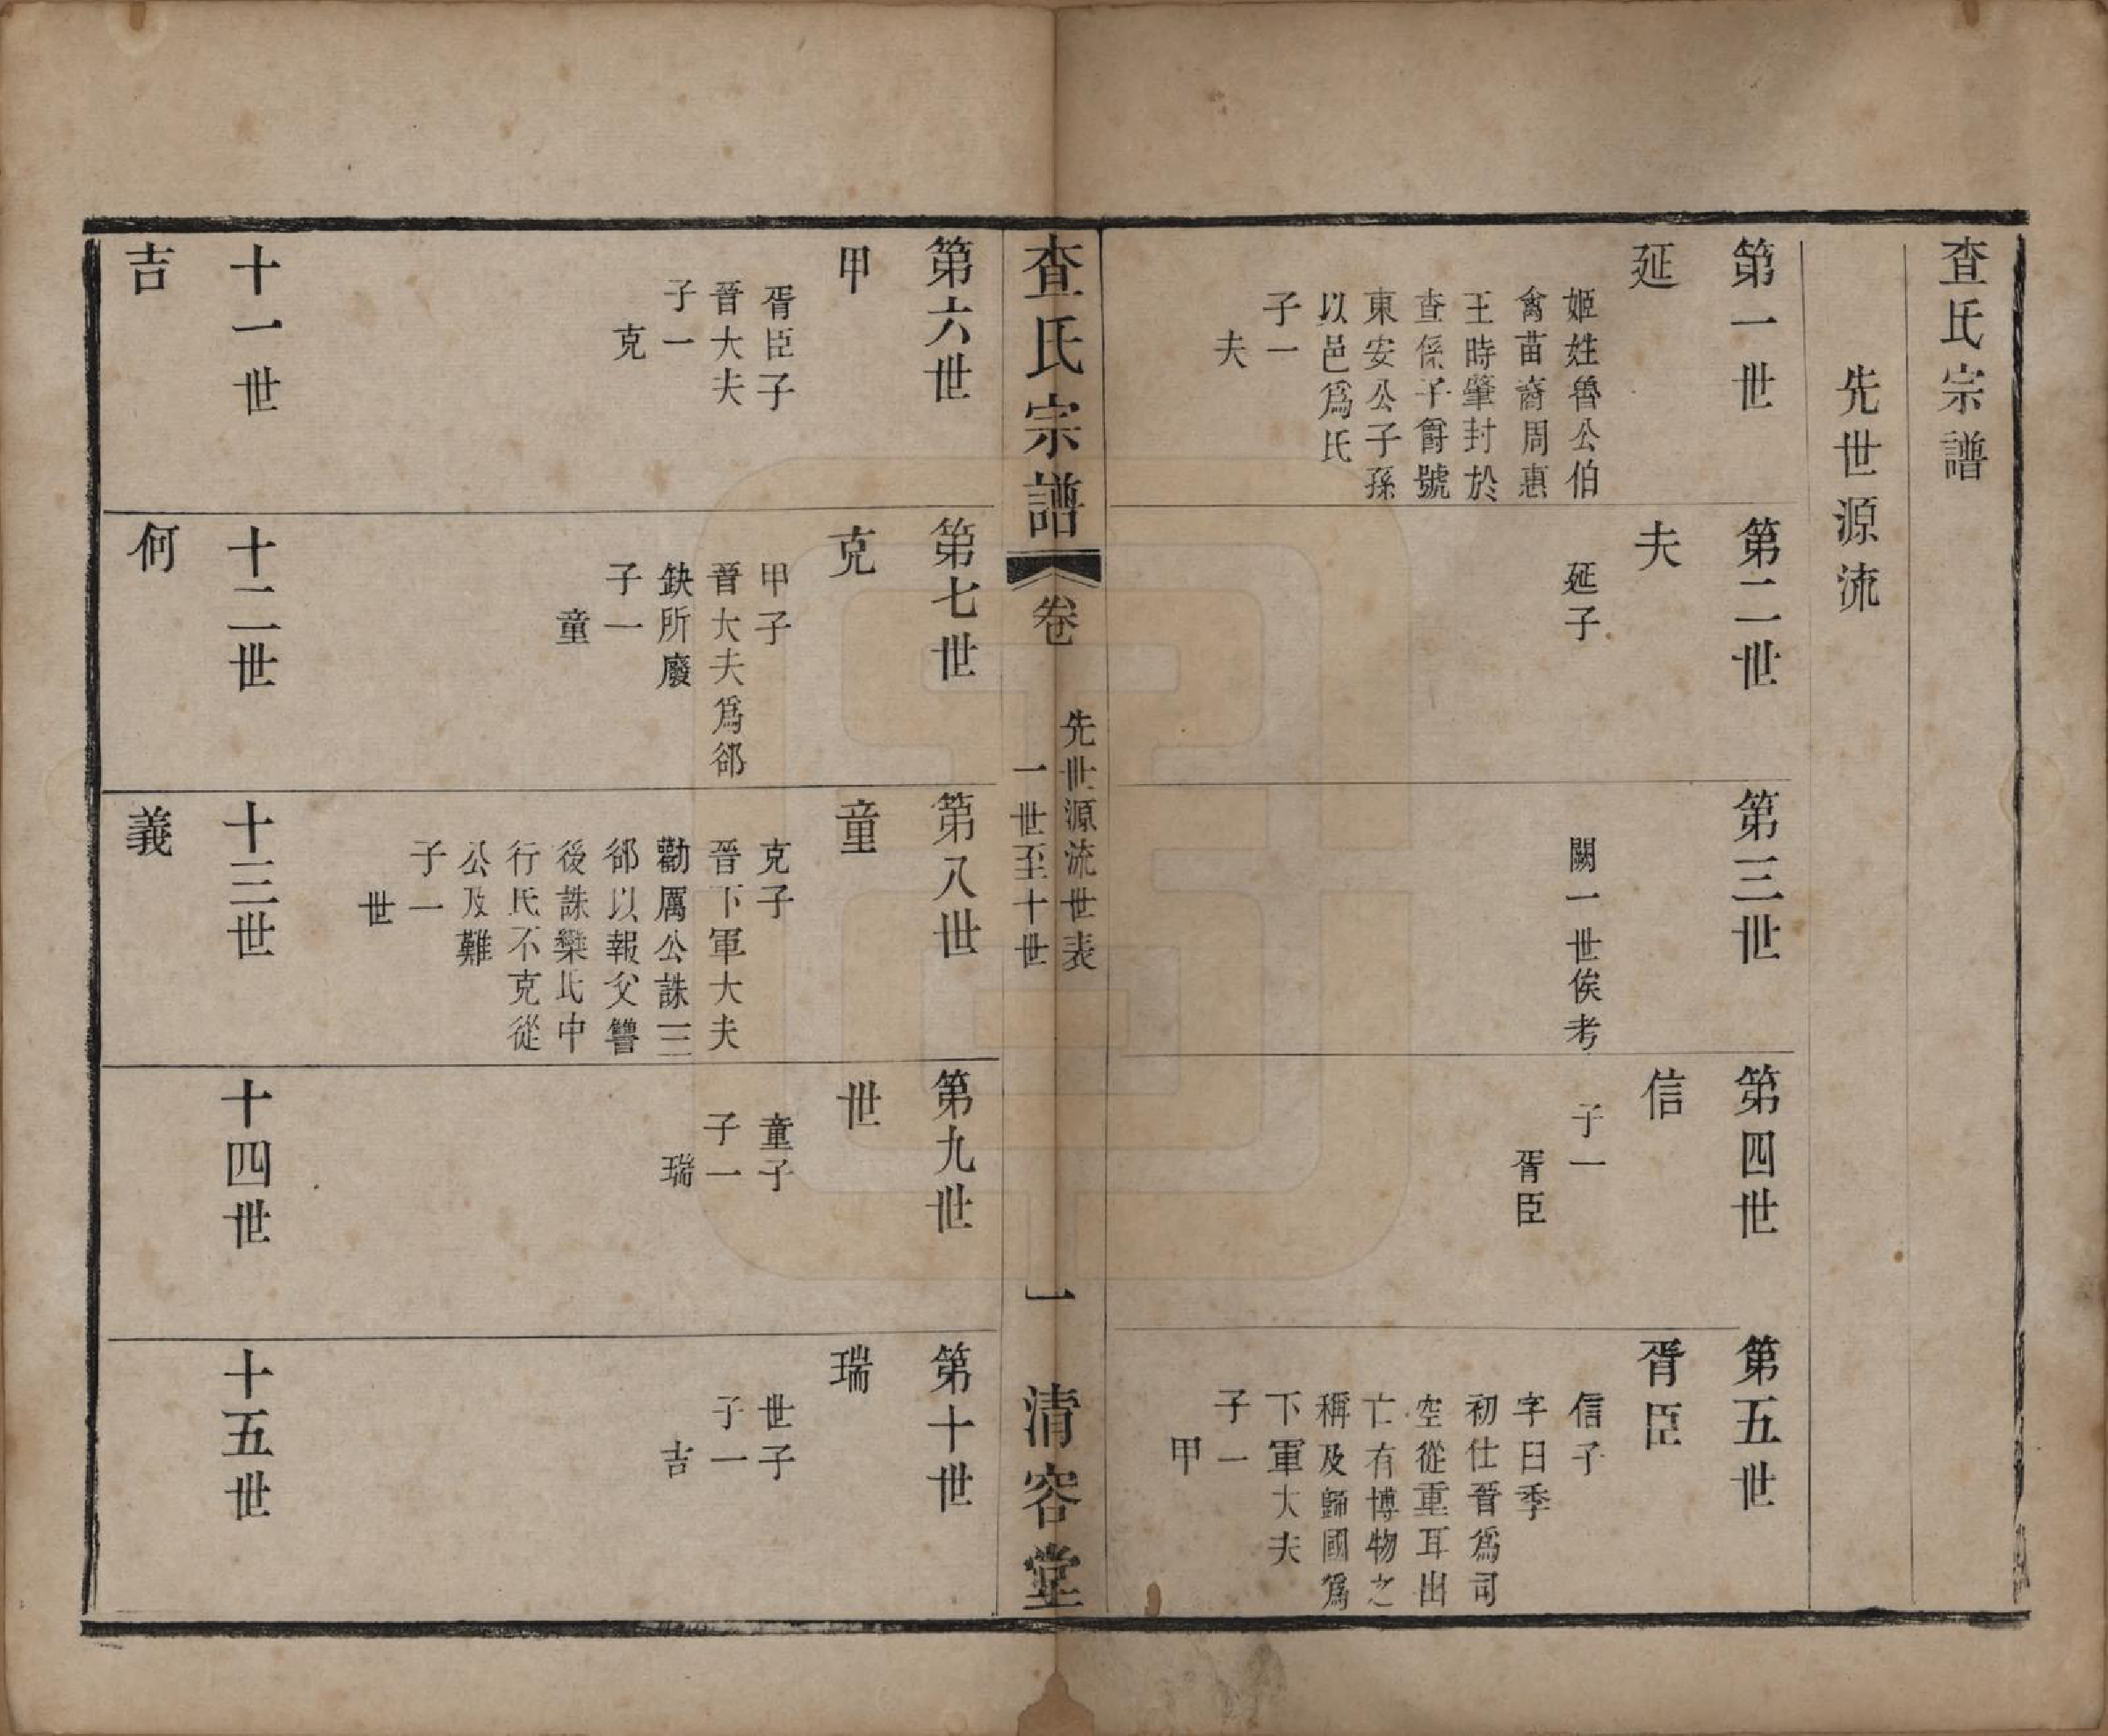 查氏宗譜
先世源流
第一世
延
姬姓魯公伯
禽苗裔周惠
王時肇封於
查係子爵號
東安公子孫
以邑爲氏
子一
夫
第二世
夫
延子
第三世
闕一世俟考
第四世
信
子一
胥臣
第五世
胥臣
信子
字臼季
初仕晉爲司
空從重耳出
亡有博物之
稱及歸國爲
下軍大夫
子一
甲
查氏宗譜
卷
先世源流世表
一世至十世
一
清容堂
第六世
甲
胥臣子
晉大夫
子一
克
第七世
克
甲子
晉大夫爲郤
缺所廢
子一
童
第八世
童
克子
晉下軍大夫
勸厲公誅三
郤以報父讐
後誅欒氏中
行氏不克從
公及難
子一
世
第九世
世
童子
子一
瑞
第十世
瑞
世子
子一
吉
十一世
吉
十二世
何
十三世
義
十四世
十五世